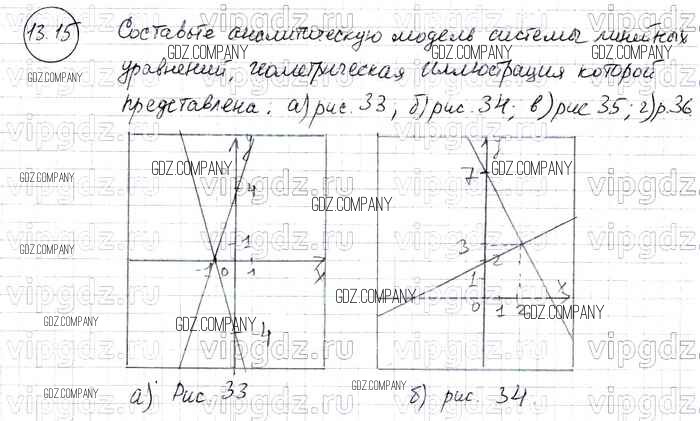 13.15 Составьте аналитическую модель системы линейных
уравнений, геометрическая иллюстрация которой
представлена: а) рис. 33, б) рис. 34; в) рис 35; г) р.36
GDZ.COMPANY
vipgdz.ru
y
4
1
-1 0 1
x
-4
а) Рис. 33
y
7
3
2
1
0 1 2
x
б) рис. 34.